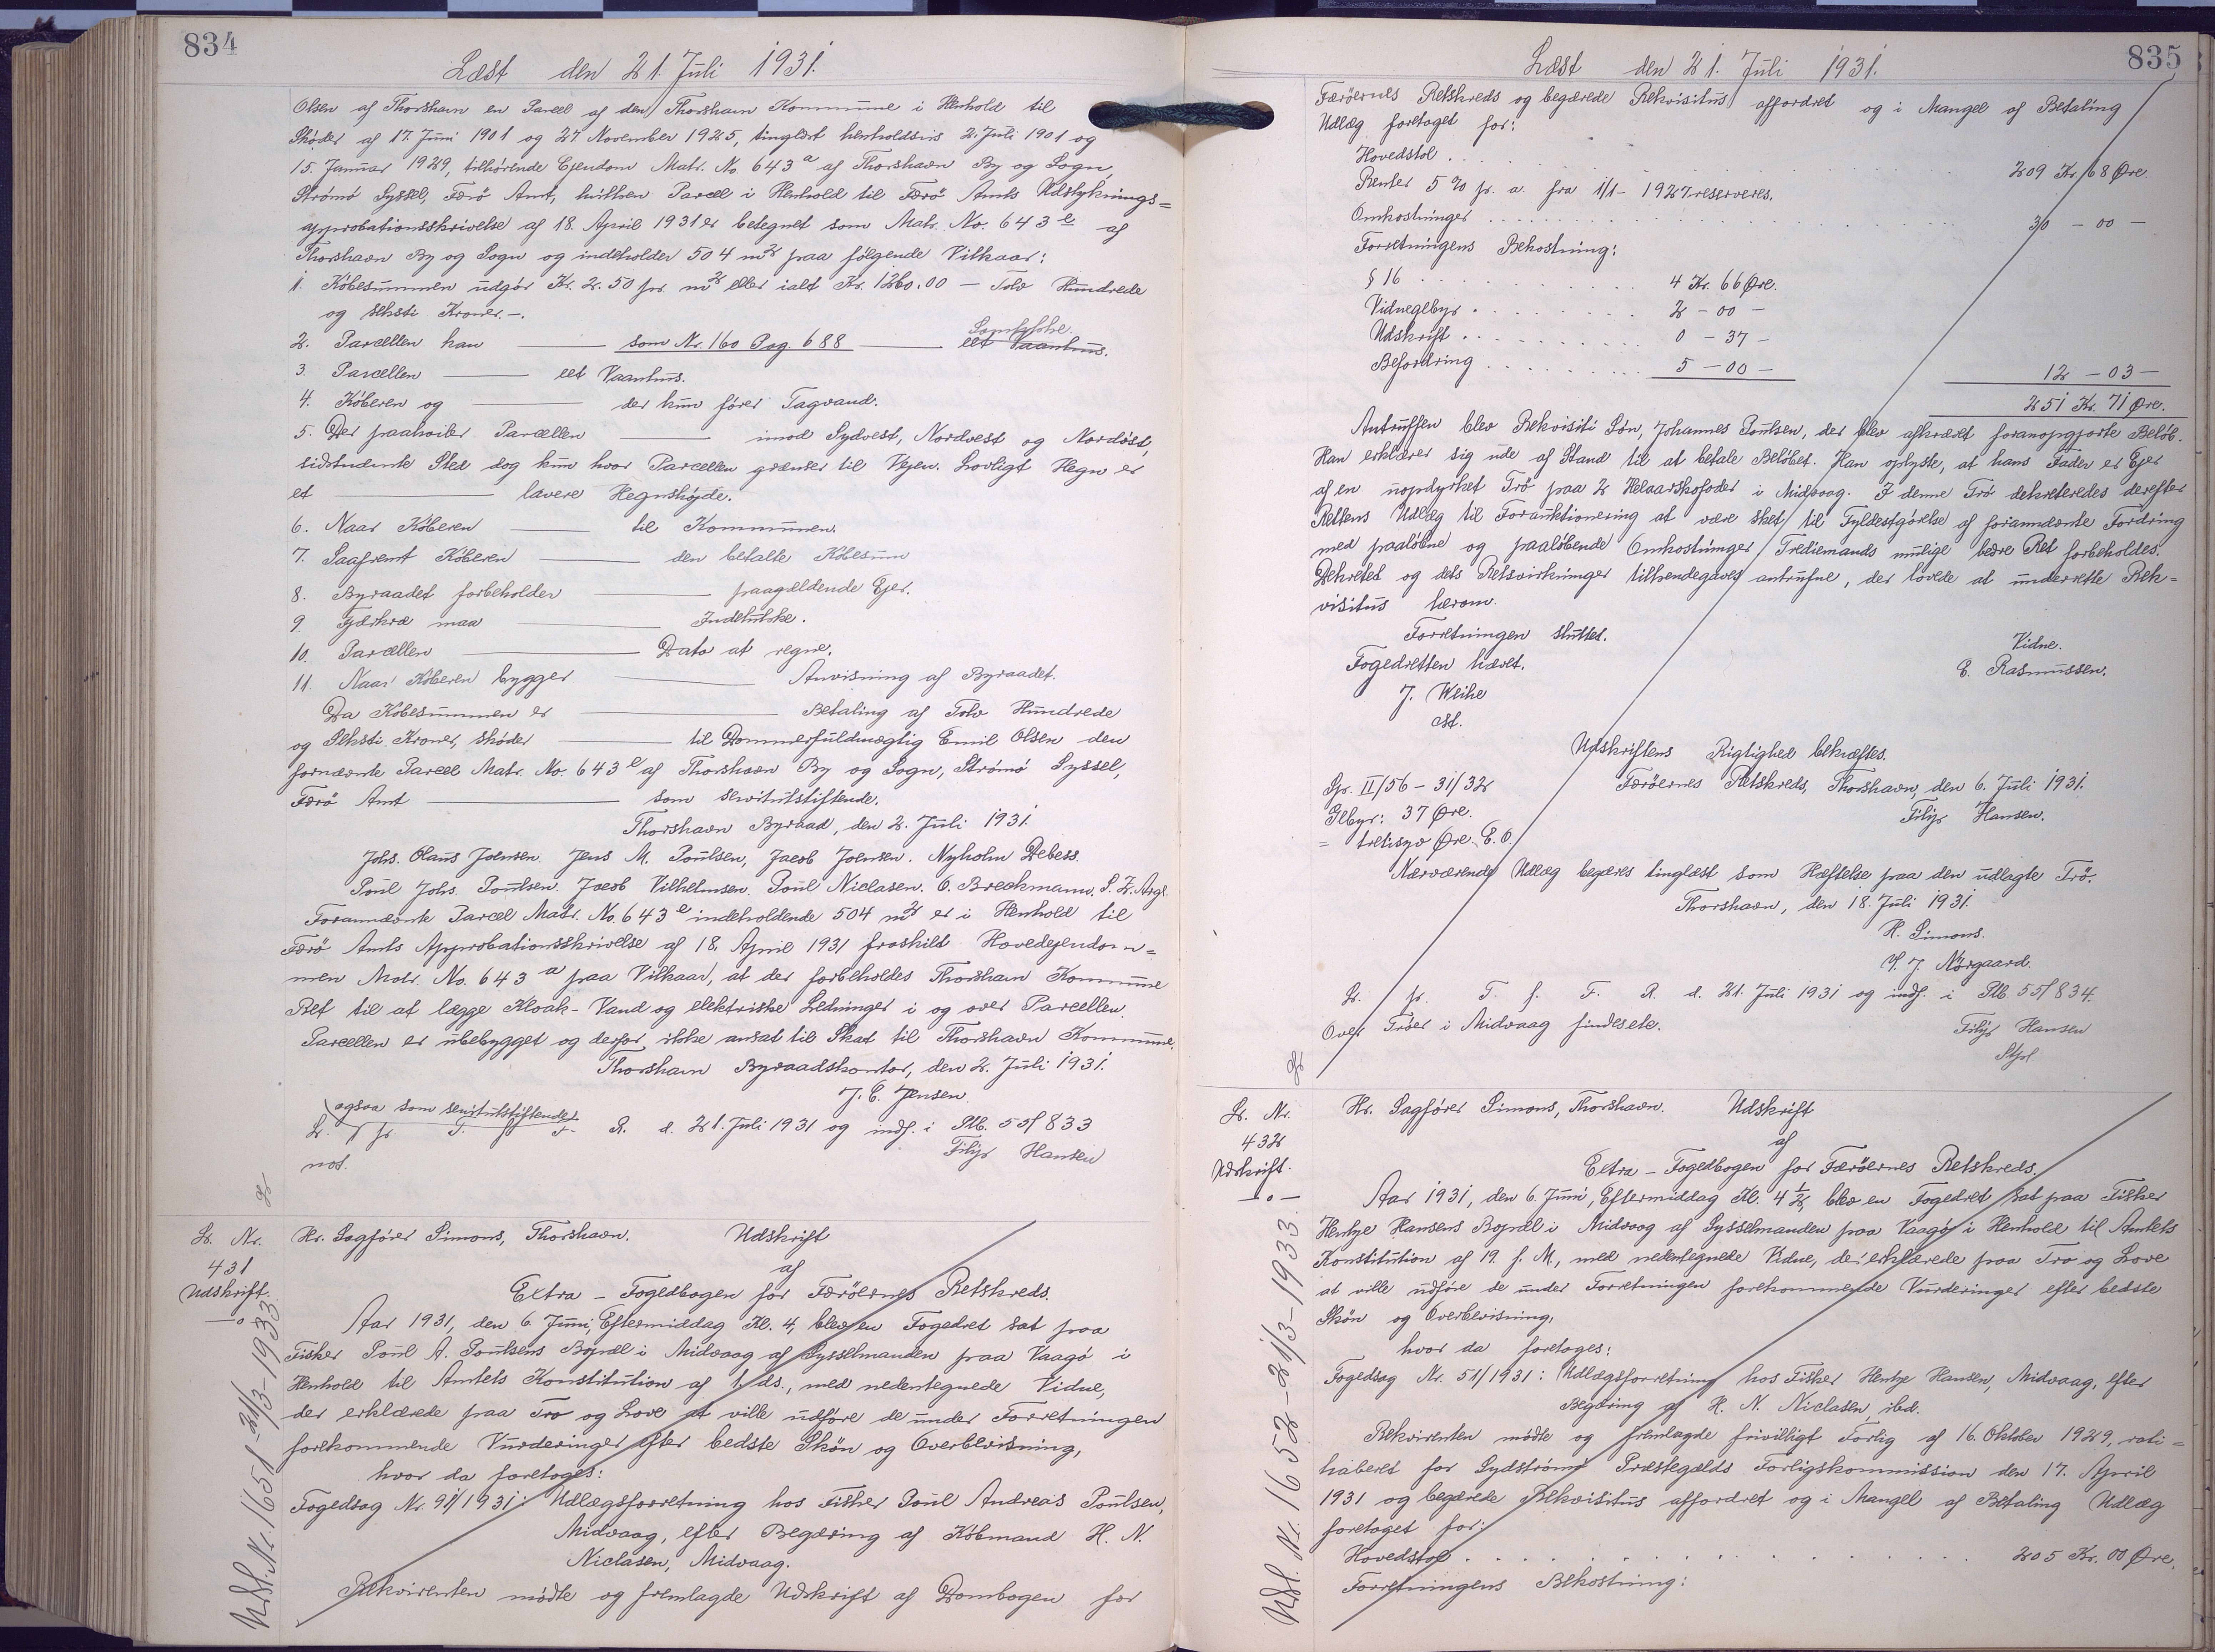 834
Læst den 21. Juli 1931.
Olsen af Thorshavn en Parcel af den Thorshavn Kommune i Henhold til
Skøder af 17. Juni 1901 og 27. November 1925, tinglæst henholdsvis 2. Juli 1901 og
15. Januar 1929, tilhørende Ejendom Matr. No. 643 a af Thorshavn By og Sogn,
Strømø Syssel, Færø Amt, hvilken Parcel i Henhold til Færø Amts Udstyknings=
approbationsskrivelse af 18. April 1931 er betegnet som Matr. No. 643 e af
Thorshavn By og Sogn og indeholder 504 m² paa følgende Vilkaar:
1. Købesummen udgør Kr. 2.50 pr. m² eller ialt Kr. 1260.00 — Tolv Hundrede
og seksti Kroner. —.
2. Parcellen kan —— som Nr. 160 Pag. 688 —— Samtykke. eet Vaanhus.
3. Parcellen —— eet Vaanhus.
4. Køberen og —— der kun fører Tagvand.
5. Der paahviler Parcellen —— imod Sydvest, Nordvest og Nordøst,
sidstnævnte Sted dog kun hvor Parcellen grænser til Vejen. Lovligt Hegn er
et —— lavere Hegnshøjde.
6. Naar Køberen —— til Kommunen.
7. Saafremt Køberen —— den betalte Købesum
8. Byraadet forbeholder —— paagældende Ejer.
9. Fjerkræ maa —— Indelukke.
10. Parcellen —— Dato at regne.
11. Naar Køberen bygger —— Anvisning af Byraadet.
Da Købesummen er —— Betaling af Tolv Hundrede
og Seksti Kroner, skøder —— til Dommerfuldmægtig Emil Olsen den
fornævnte Parcel Matr. No. 643 e af Thorshavn By og Sogn, Strømø Syssel,
Færø Amt —— som servitutstiftende.
Thorshavn Byraad, den 2. Juli 1931.
Johs. Olaus Joensen. Jens M. Poulsen, Jacob Joensen. Nyholm Debess.
Poul Johs. Poulsen. Jacob Vilhelmsen. Poul Niclasen. O. Breckmann. S. Z. Arge.
Forannævnte Parcel Matr. No. 643 e indeholdende 504 m² er i Henhold til
Færø Amts Approbationsskrivelse af 18. April 1931 fraskilt Hovedejendom=
men Matr. No. 643 a paa Vilkaar, at der forbeholdes Thorshavn Kommune
Ret til at lægge Kloak- Vand og elektriske Ledninger i og over Parcellen.
Parcellen er ubebygget og derfor ikke ansat til Skat til Thorshavn Kommune.
Thorshavn Byraadskontor, den 2. Juli 1931.
J. C. Jensen.
ogsaa som servitutstiftende
L. pr T. f. F. R. d. 21. Juli 1931 og indf. i Ptb. 55/833
not.
Filip Hansen
L. Nr.
431
Udskrift.
—o—
Udsl. Nr. 1651 21/3-1933
Hr. Sagfører Simons, Thorshavn. Udskrift
af
Extra - Fogedbogen for Færöernes Retskreds.
Aar 1931, den 6. Juni, Eftermiddag Kl. 4, blev en Fogedret sat paa
Fisker Poul A. Poulsens Bopæl i Midvaag af Sysselmanden paa Vaagø i
Henhold til Amtets Konstitution af 1. ds., med nedentegnede Vidne,
der erklærede paa Tro og Love at ville udføre de under Forretningen
forekommende Vurderinger efter bedste Skøn og Overbevisning,
hvor da foretoges:
Fogedsag Nr. 97/1931: Udlægsforretning hos Fisker Poul Andreas Poulsen,
Midvaag, efter Begæring af Købmand H. N.
Niclasen, Midvaag.
Rekvirenten mødte og fremlagde Udskrift af Dombogen for
835
Læst den 21. Juli 1931.
Færøernes Retskreds og begærede Rekvisitus affordret og i Mangel af Betaling
Udlæg foretaget for:
Hovedstol . . . 209 Kr. 68 Øre.
Renter 5 % pr. a. fra 1/1 - 1927 reserveres.
Omkostninger . . . 30 - 00 -
Forretningens Bekostning:
§ 16 . . . 4 Kr. 66 Øre.
Vidnegebyr . . . 2 - 00 -
Udskrift . . . 0 - 37 -
Befordring . . . 5 - 00 - 12 - 03 -
251 Kr. 71 Øre.
Antruffen blev Rekvisiti Søn, Johannes Poulsen, der blev afkrævet foranopgjorte Beløb.
Han erklærer sig ude af Stand til at betale Beløbet. Han oplyste, at hans Fader er Ejer
af en uopdyrket Trø paa 2 Helaarskofoder i Midvaag. I denne Trø dekreteredes derefter
Rettens Udlæg til Forauktionering at være sket til Fyldestgørelse af forannævnte Fordring
med paaløbne og paaløbende Omkostninger Trediemands mulige bedre Ret forbeholdes.
Dekretet og dets Retsvirkninger tilkendegaves antrufne, der lovede at underrette Rek=
visitus herom.
Forretningen sluttet.
Fogedretten hævet.
J. Weihe
cst.
Vidne.
E. Rasmussen.
Udskriftens Rigtighed bekræftes.
Færöernes Retskreds, Thorshavn, den 6. Juli 1931.
Filip Hansen.
Gp. II/56 - 31/32
Gebyr: 37 Øre.
= tretisyv Øre. E. O.
Nærværende Udlæg begæres tinglæst som Hæftelse paa den udlagte Trø.
Thorshavn, den 18. Juli 1931.
H. Simons.
L. pr. T. f. F. R. d. 21. Juli 1931 og indf. i Ptb. 55/834.
Over Trøer i Midvaag findes etc.
Filip Hansen
L. Nr.
432
Udskrift.
—o—
Udsl. Nr. 1652 - 21/3-1933.
Hr. Sagfører Simons, Thorshavn. Udskrift
af
Extra - Fogedbogen for Færöernes Retskreds.
Aar 1931, den 6. Juni, Eftermiddag Kl. 4 1/2, blev en Fogedret sat paa Fisker
Hentze Hansens Bopæl i Midvaag af Sysselmanden paa Vaagø i Henhold til Amtets
Konstitution af 19. f. M., med nedentegnede Vidne, der erklærede paa Tro og Love
at ville udføre de under Forretningen forekommende Vurderinger efter bedste
Skøn og Overbevisning,
hvor da foretoges:
Fogedsag Nr. 51/1931: Udlægsforretning hos Fisker Hentze Hansen, Midvaag, efter
Begæring af H. N. Niclasen, ibd.
Rekvirenten mødte og fremlagde frivilligt Forlig af 16. Oktober 1929, rati=
haberet for Sydstrømø Præstegælds Forligskommission den 17. April
1931 og begærede Rekvisitus affordret og i Mangel af Betaling Udlæg
foretaget for:
Hovedstol . . . 205 Kr. 00 Øre.
Forretningens Bekostning: